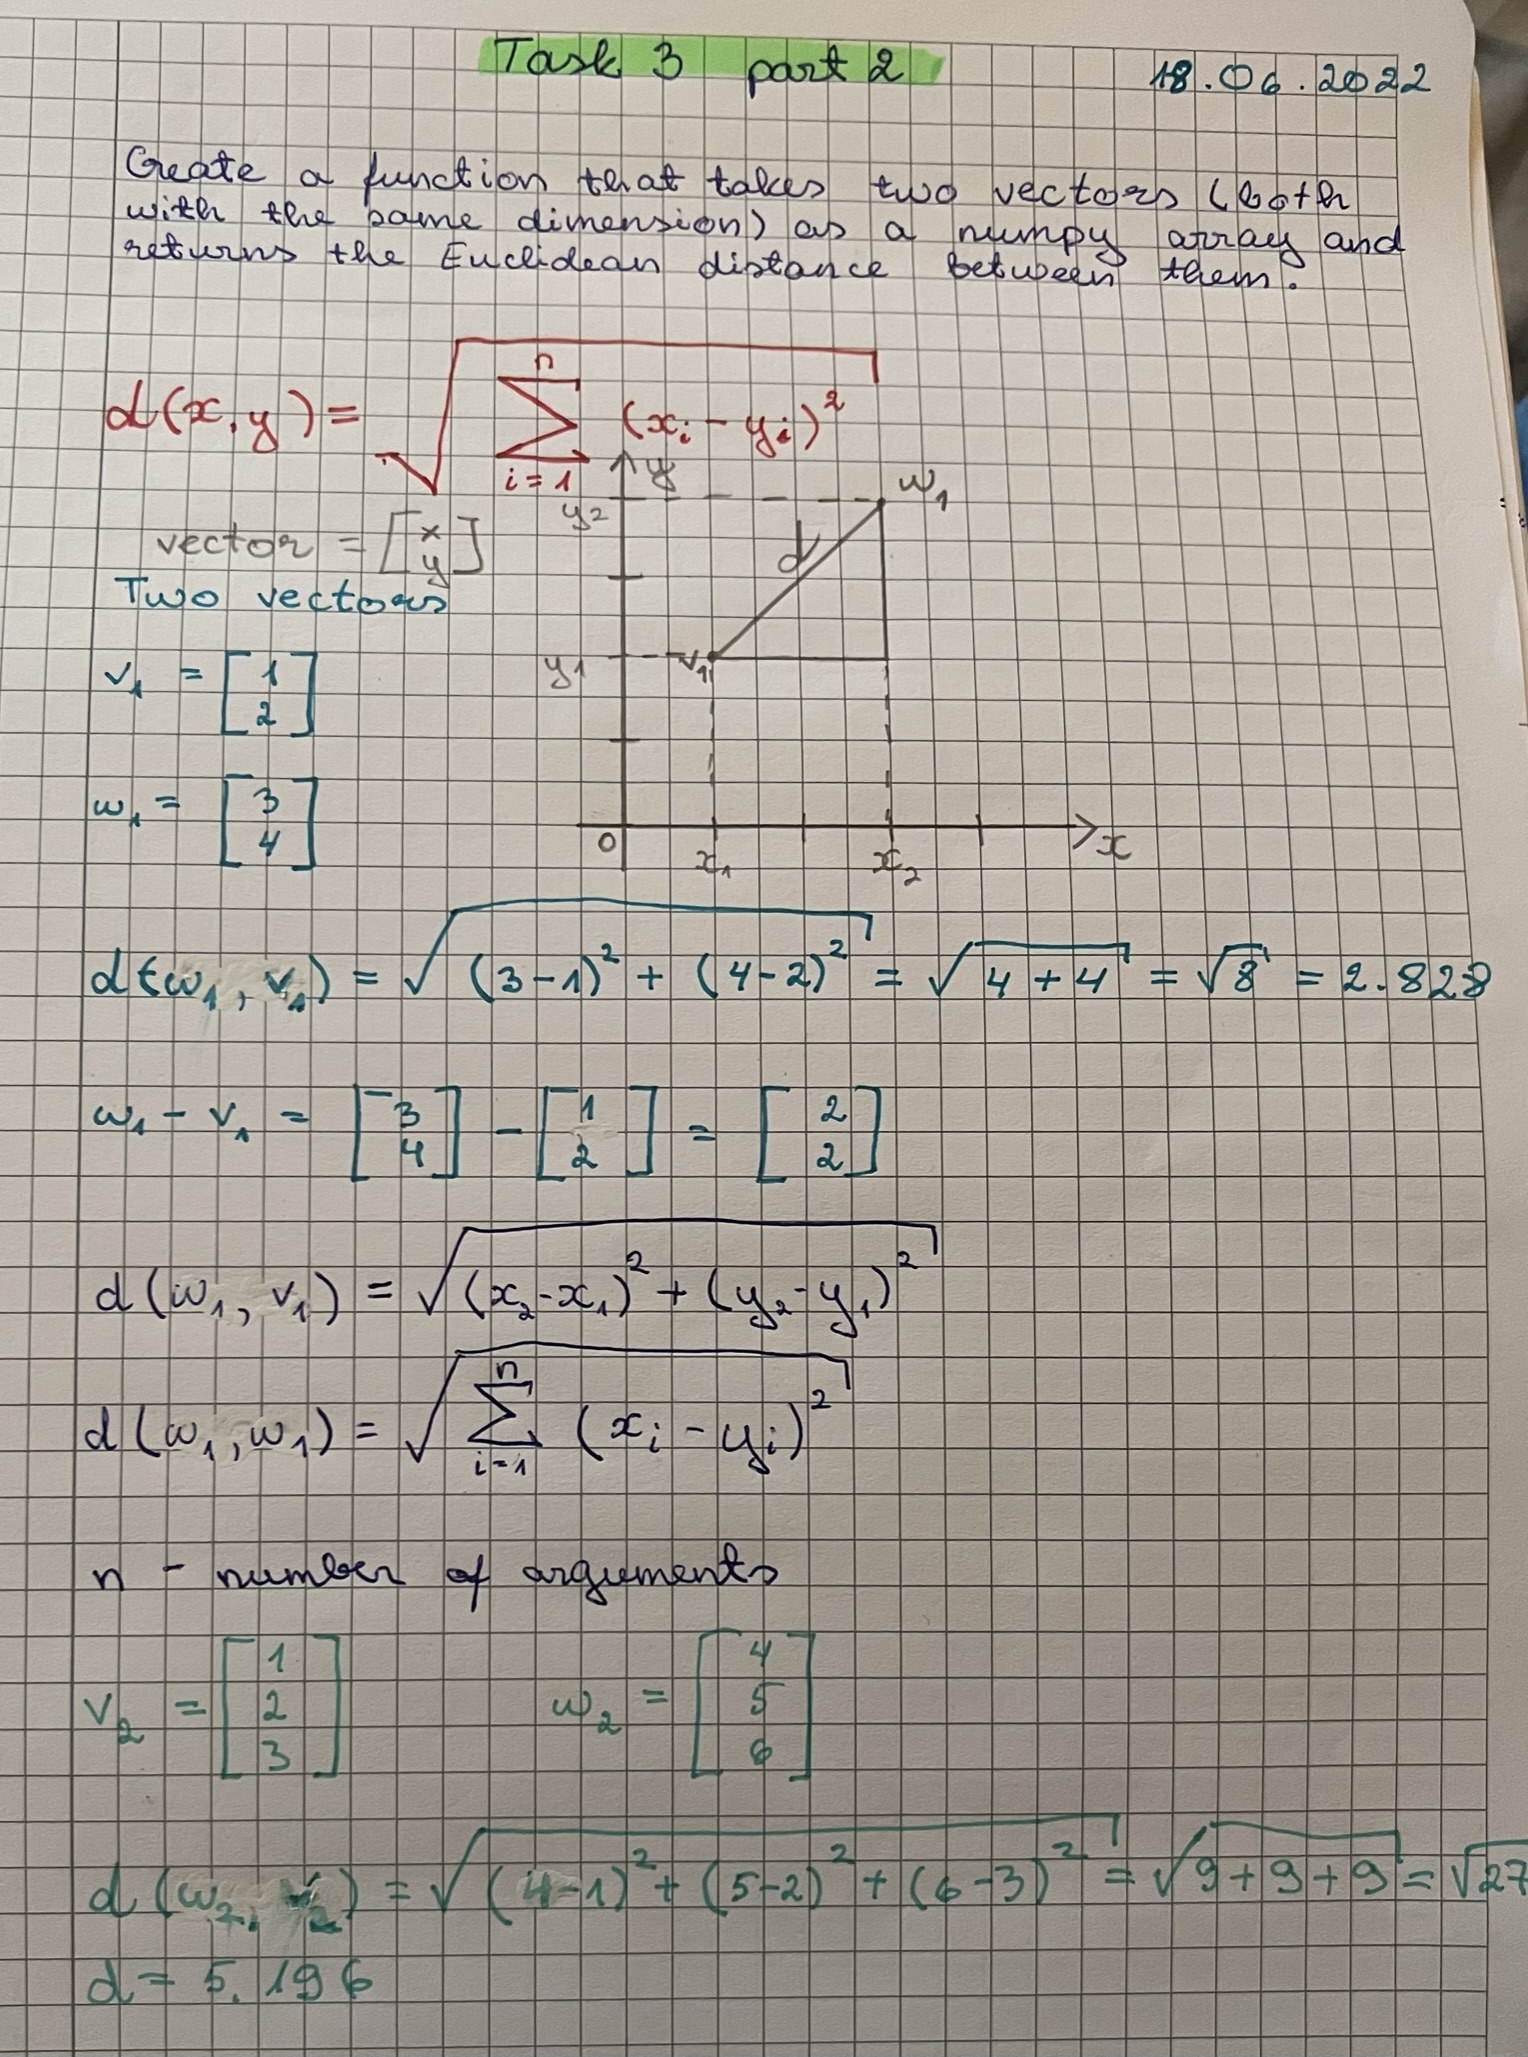 Task 3 part 2
18.06.2022
Create a function that takes two vectors (both
with the same dimension) as a numpy array and
returns the Euclidean distance between them.
d(x,y) = √ n ∑ i=1 (xi - yi)²
vector = [x y]
Two vectors
v1 = [1 2]
w1 = [3 4]
y
y2
w1
d
y1
v1
0
x1
x2
x
d(w1, v1) = √(3-1)² + (4-2)² = √4+4 = √8 = 2.828
w1 - v1 = [3 4] - [1 2] = [2 2]
d(w1, v1) = √(x2-x1)² + (y2-y1)²
d(w1, w1) = √ n ∑ i=1 (xi - yi)²
n - number of arguments
v2 = [1 2 3] w2 = [4 5 6]
d(w2, v2) = √(4-1)² + (5-2)² + (6-3)² = √9+9+9 = √27
d = 5.196